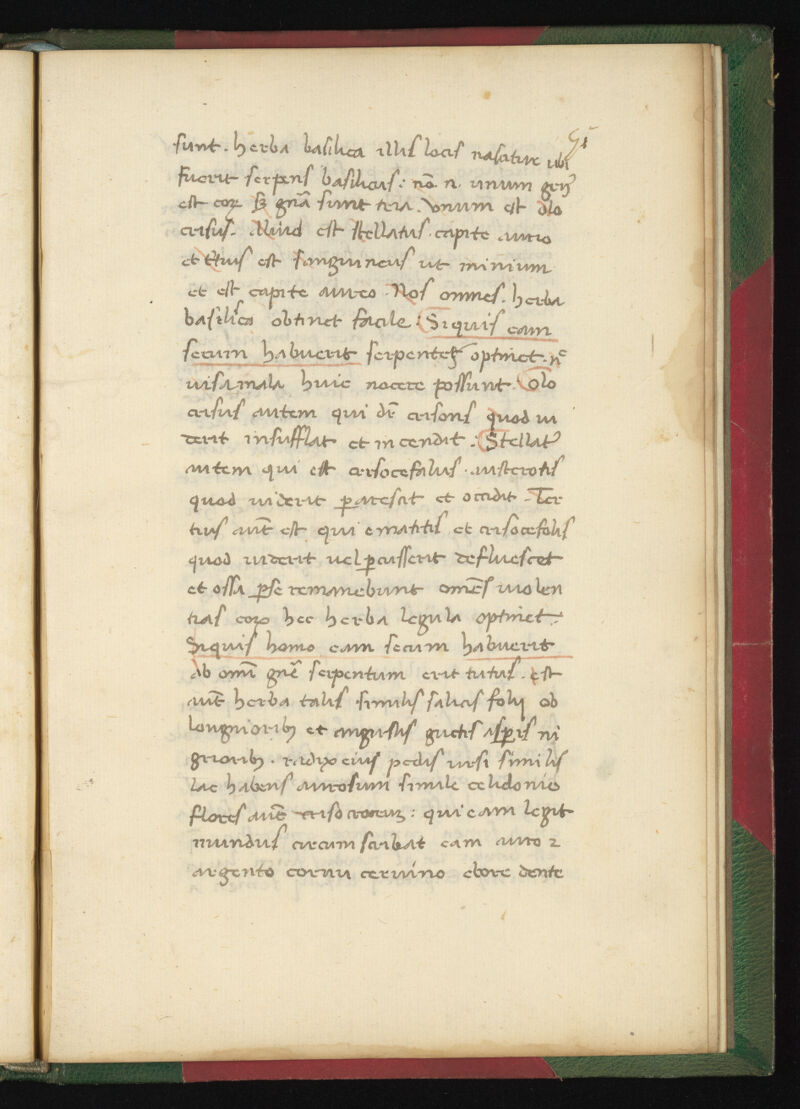 91
sunt. herba basilica illis locis nascitur ubi
fuerit serpens basilicus: nō n. unum gen⁹
est coꝝ sꝫ gnā sunt tria. Unum est olo
crisus. Aliud est stellatus capite aureo
et t̄tius est sanguineus ut minium
et est capite aureo. Nos omnes. herba
basilisca obtinet facile: Siquis eam
secum habuerit serpentes optinet. n̄
uisa mala huic nocere possunt. Olo
crisus autem qui dr̄ crisons quod ui
derit insufflat et incendit: Stellat⁹
autem qui est crisocefalus. austerotis
quod uiderit ꝑarescit et occidit. Ter
tius aut̄ est qui ematitis et crisocefolis
quod uiderit uel ꝑcusserit defluescet
et ossa ꝑse remanebunt omēs uiolen
tias eoꝝ hec herba legula optinet.
Siquis homo eam secum habuerit
Ab omī gnē serpentum erit tutus. Est
aut̄ herba talis similis salicis folij ob
longiorib; et angustis guctis asꝑis ni
griorib;. radix eius pedis ursi similis
lac habens aurosum simile celidonie
flores aut̄ crisocroceus: qui eam legit
mundus circumscribat eam auro ⁊
argento cornu ceruino ebore dente